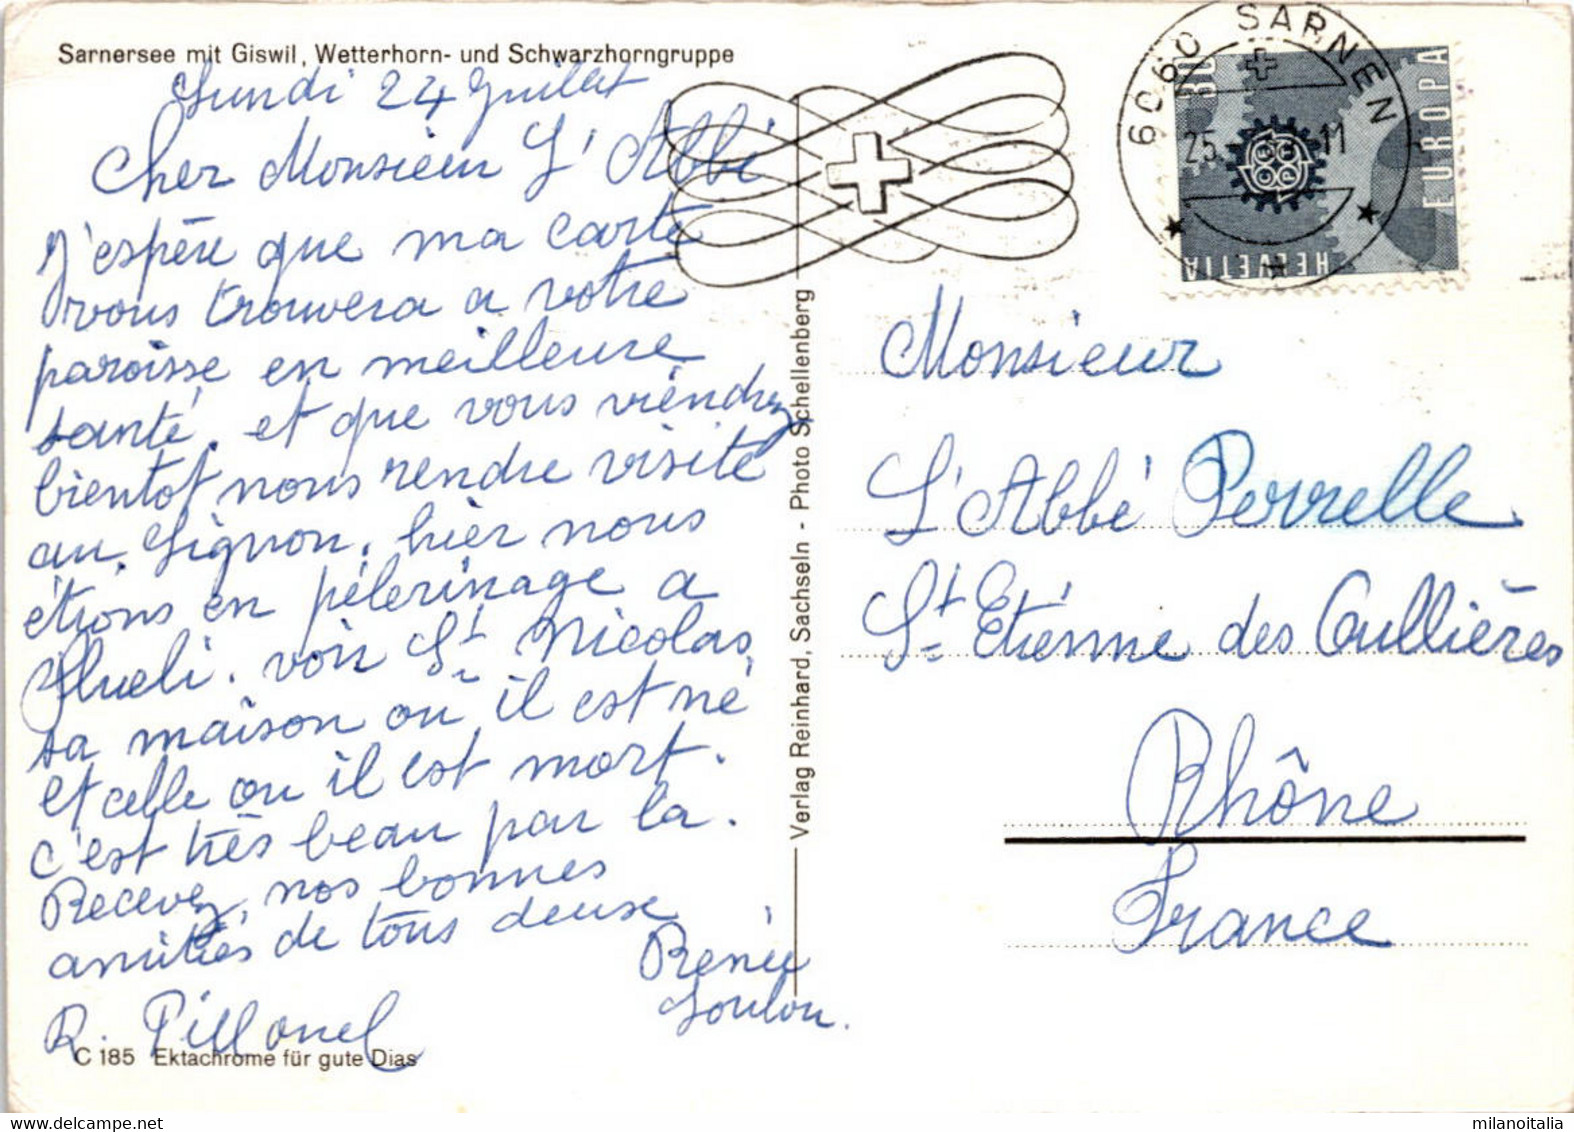 Sarnersee mit Giswil, Wetterhorn- und Schwarzhorngruppe
Lundi 24 Juillet
Cher Monsieur L'Abbé
J'espère que ma carte
vous trouvera a votre
paroisse en meilleure
santé. et que vous viendrez
bientot nous rendre visite
au Lignon. hier nous
étions en pélerinage a
Flueli. voir St Nicolas,
sa maison où il est né
et celle ou il est mort.
c'est très beau par la.
Recevez, nos bonnes
amitiés de tous deuse
Renée
Loulou.
R. Pillonel
C 185 Ektachrome für gute Dias
Verlag Reinhard, Sachseln - Photo Schellenberg
6060 SARNEN
25.
11
EUROPA
30
CEPT
HELVETIA
Monsieur
L'Abbé Perrelle
St Etienne des Oullières
Rhône
France
milanoitalia